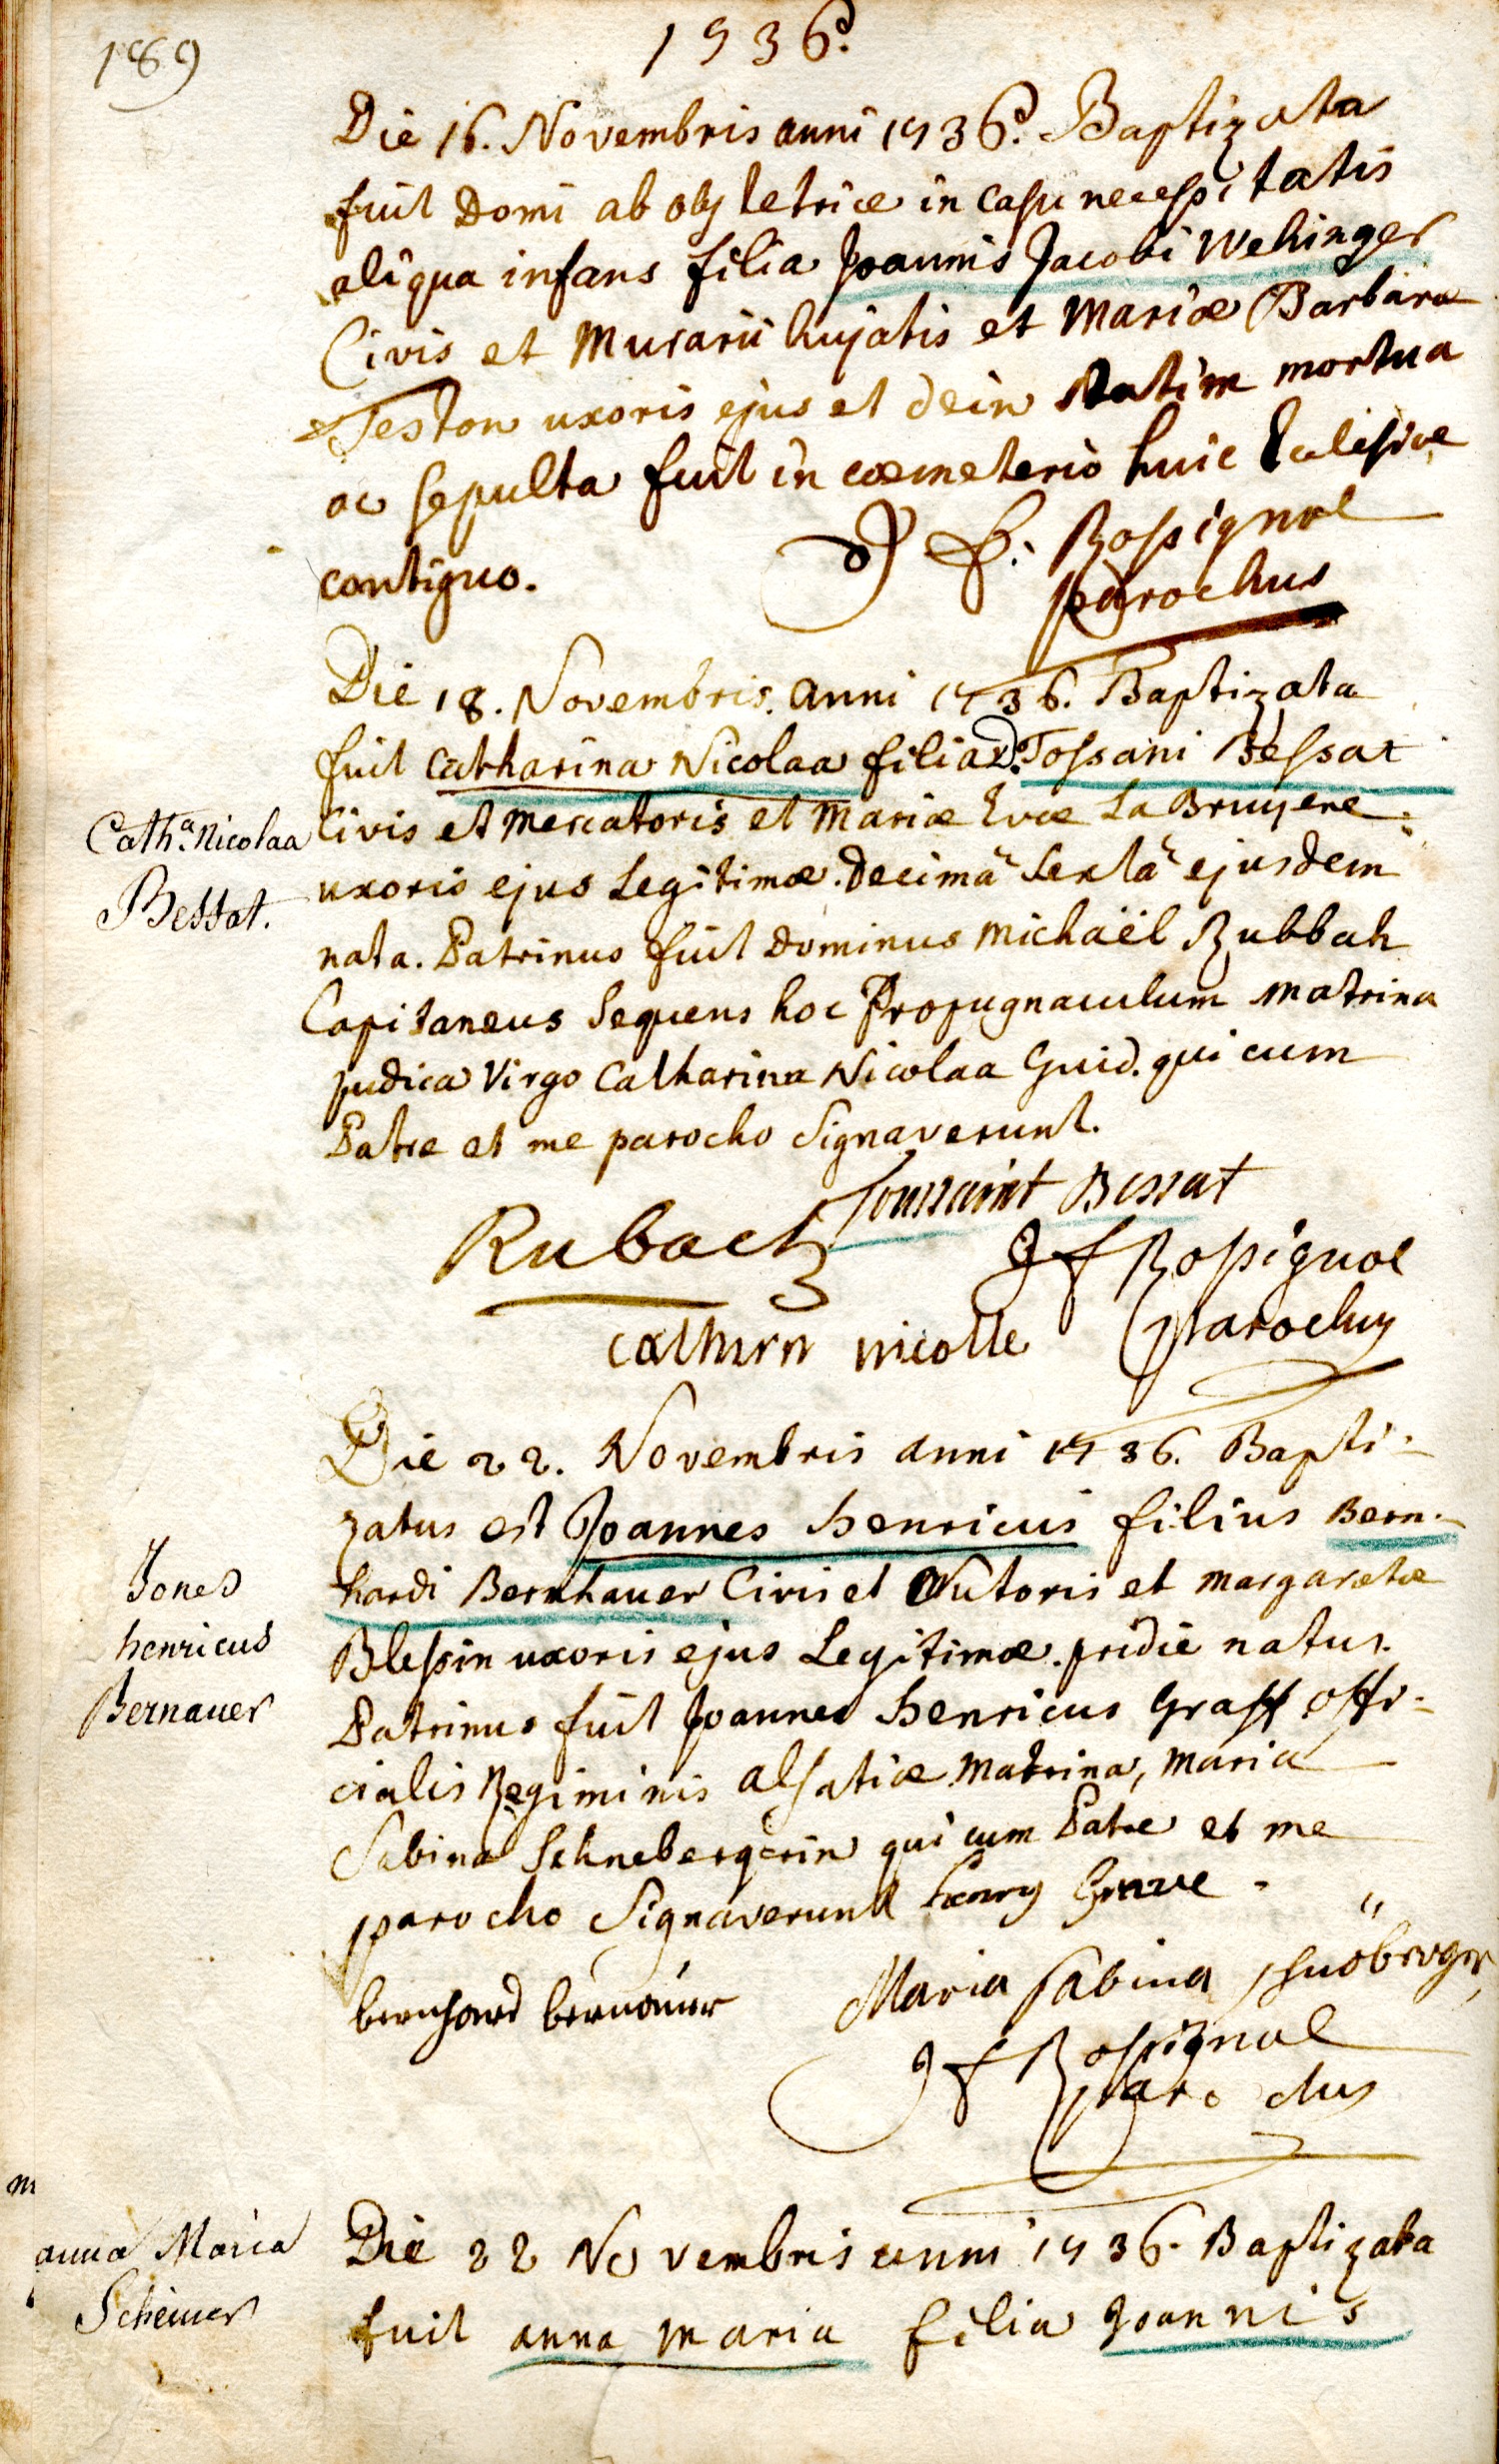 189
1736.
Die 16. Novembris anni 1736. Baptizata
fuit Domi ab obstetrice in casu necessitatis
aliqua infans filia Joannis Jacobi Wehinger
Civis et Murarii hujatis et Mariæ Barbaræ
Teston uxoris ejus et dein statim mortua
ac sepulta fuit in cœmeterio huic Eclesiæ
contiguo.
J f. Rossignol
parochus
Die 18. Novembris anni 1736. Baptizata
fuit Catharina Nicolaa filia D. Tossani Bessat
Civis et Mercatoris et Mariæ Evæ La Bruyere
uxoris ejus Legitimæ. Decimâ Sextâ ejusdem
nata. Patrinus fuit Dominus Michaël Rubbah
Capitaneus Sequens hoc Propugnaculum Matrina
pudica Virgo Catharina Nicolaa Guid. qui cum
Patre et me parocho Signaverunt.
Cath.a Nicolaa
Bessat.
Toussaint Bessat
Rubach
J f Rossignol
parochus
cathirn nicolle
Die 22. Novembris anni 1736. Bapti-
zatus est Joannes Henricus filius Bern-
hardi Bernhauer Civis et Nutoris et Margaretæ
Blessin uxoris ejus Legitimæ. pridie natus.
Patrinus fuit Joannes Henricus Graff offi-
cialis Regiminis Alsatiæ Matrina, Maria
Sabina Schnebergerin qui cum Patre et me
parocho Signaverunt Henry Grave
Jones
henricus
Bernauer
Maria Sabina
bernhard bernauer
J f Rossignol
parochus
m
anna Maria
Die 22 Novembris anni 1736. Baptizata
fuit anna maria filia Joannis